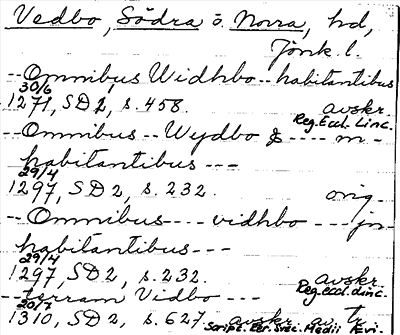 Vedbo, Södra o. Norra, hd,
Jönk. l.
-- Omnibus Widhbo -- habitantibus
30/6
1271, SD 1, s. 458. avskr.
Reg. Eccl. Linc.
-- Omnibus -- Wydbo & ---- in -
habitantibus ---
29/4
1297, SD 2, s. 232. orig.
-- Omnibus ---- vidhbo --- jn
habitantibus ---
29/4
1297, SD 2, s. 232. avskr.
Reg. eccl. Linc.
-- terram Vidbo ---
20/7
1310, SD 2, s. 627. avskr. av tr.
Script. rer. Svec. Medii Ævi.